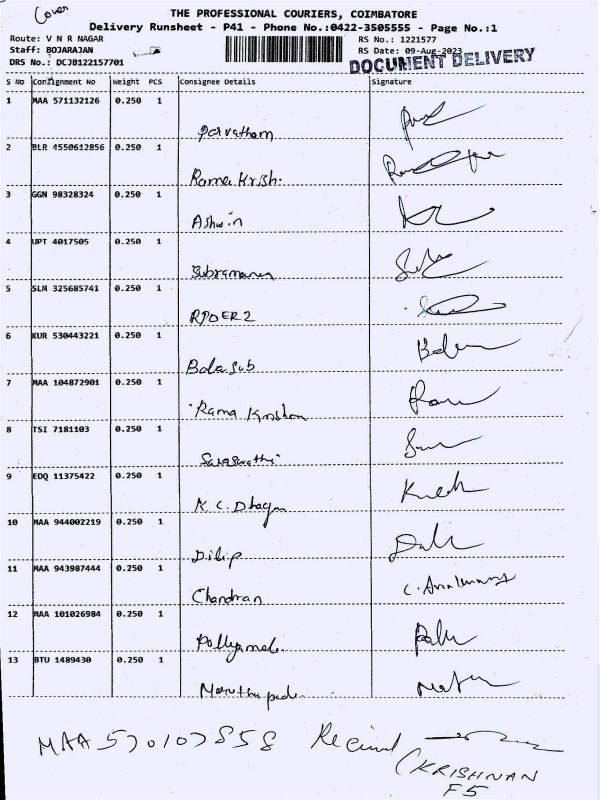 Cover
THE PROFESSIONAL COURIERS, COIMBATORE
Delivery Runsheet - P41 - Phone No.:0422-3505555 - Page No.:1
Route: V N R NAGAR
RS No.: 1221577
Staff: BOJARAJAN
RS Date: 09-Aug-2023
DRS No.: DCJB122157701
DOCUMENT DELIVERY
S No Consignment No Weight PCS Consignee Details Signature
1 MAA 571132126 0.250 1
Parvatham
2 BLR 4550612856 0.250 1
Rama Krish.
3 GGN 98328324 0.250 1
Ashwin
4 UPT 4017505 0.250 1
5 SLM 325685741 0.250 1
6 KUR 530443221 0.250 1
Bala Sub
7 MAA 104872901 0.250 1
Rama
8 TSI 7181103 0.250 1
Saraswathi
9 EDQ 11375422 0.250 1
K. C.
10 MAA 944002219 0.250 1
Dilip
11 MAA 943987444 0.250 1
Chandran
12 MAA 101026984 0.250 1
13 BTU 1489430 0.250 1
MAA 570107858 Received
(KRISHNAN
F5